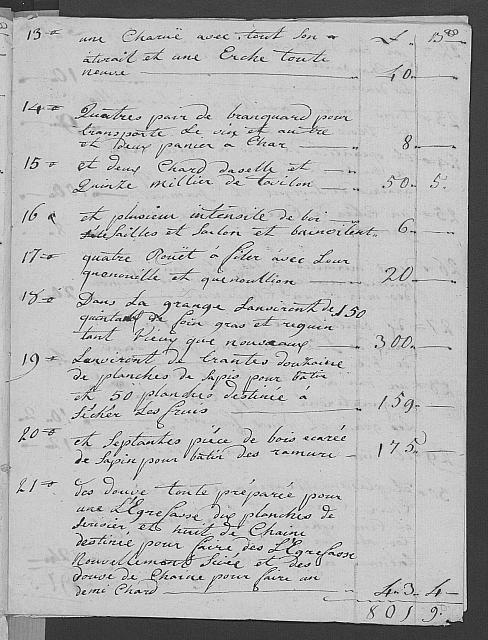 13° une Charuë avec tout Son
atirail et une Erche toute
neuve 40
14° Quatres pair de branquard pour
transporte Le vin et autre
et deux panier a Char 8
15° et deux Chard daselle et
Quinze millier de tavilon 50 5
16 et plusieur intensile de boi
Sailles et Saulon et 6
17° quatre Rouët à filer avec Leur
quenouille et quenoullion 20
18° Dans La grange Lanviront de 150
quintaux de foin gras et reguin
tant vieux que nouveaux 300
19° Lanviront de trantes douzaine
de planches de Sapis pour batir
et 50 planches destiné à
Sécher Les fruis 159
20° et Septantes piéce de bois ecariée
de Sapin pour batir des ramure 175
21° des douve toute préparée pour
une Légrefasse dix planches de
Serisier et huit de Chaine
destinée pour faire des Légrefasse
Nouvellement Siée et des
douve de Chaine pour faire un
demi Chard 43 4
801 9